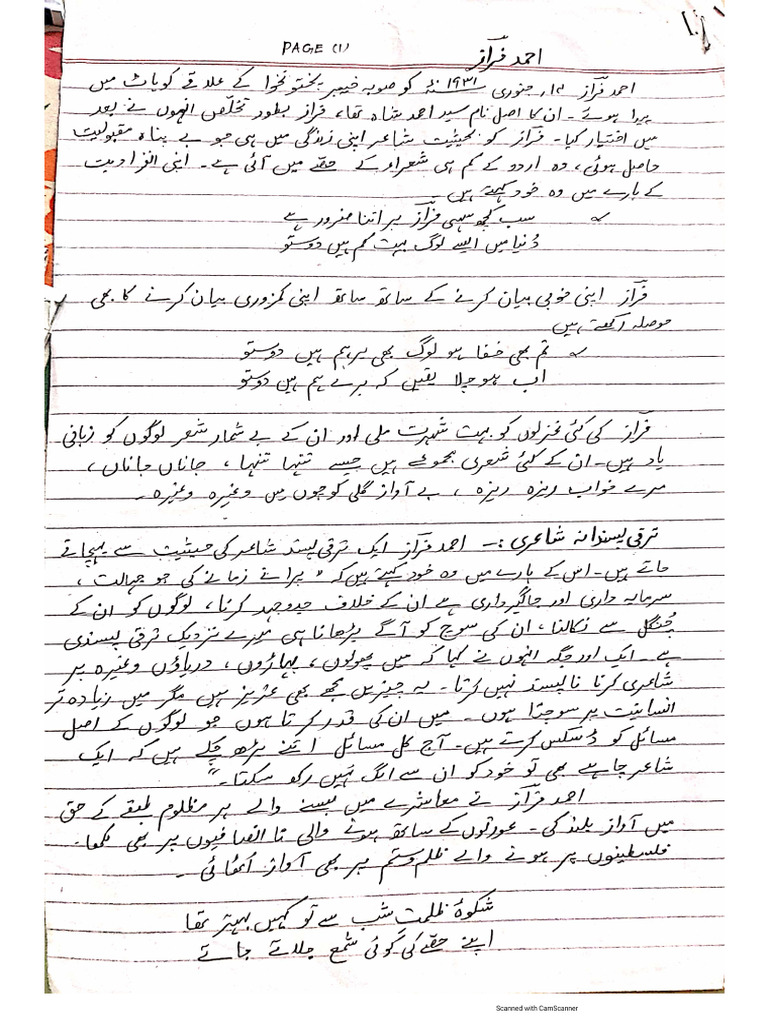 PAGE (1)
احمد فرازؔ
احمد فرازؔ ۱۲، جنوری ۱۹۳۱ء کو صوبہ خیبر پختونخوا کے علاقے کوہاٹ میں
پیدا ہوئے۔ ان کا اصل نام سید احمد شاہ تھا، فراز بطور تخلص انہوں نے بعد
میں اختیار کیا۔ فرازؔ کو بحیثیت شاعر اپنی زندگی میں ہی جو بے پناہ مقبولیت
حاصل ہوئی، وہ اردو کے کم ہی شعراء کے حصّے میں آئی ہے۔ اپنی انفرادیت
کے بارے میں وہ خود کہتے ہیں۔
سب کچھ سہی فرازؔ پر اتنا ضرور ہے
دُنیا میں ایسے لوگ بہت کم ہیں دوستو
فرازؔ اپنی خوبی بیان کرنے کے ساتھ ساتھ اپنی کمزوری بیان کرنے کا بھی
حوصلہ رکھتے ہیں
تم بھی خفا ہو لوگ بھی برہم ہیں دوستو
اب ہو چلا یقیں کہ برے ہم ہیں دوستو
فرازؔ کی کئی غزلوں کو بہت شہرت ملی اور ان کے بے شمار شعر لوگوں کو زبانی
یاد ہیں۔ ان کے کئی شعری مجموعے ہیں جیسے تنہا تنہا، جاناں جاناں،
میرے خواب ریزہ ریزہ، بے آواز گلی کوچوں میں وغیرہ وغیرہ۔
ترقی پسندانہ شاعری :۔ احمد فرازؔ ایک ترقی پسند شاعر کی حیثیت سے پہچانے
جاتے ہیں۔ اس کے بارے میں وہ خود کہتے ہیں کہ " پرانے زمانے کی جو جہالت،
سرمایہ داری اور جاگیرداری ہے ان کے خلاف جدوجہد کرنا، لوگوں کو ان کے
چُنگل سے نکالنا، ان کی سوچ کو آگے بڑھانا ہی میرے نزدیک ترقی پسندی
ہے۔ ایک اور جگہ انہوں نے کہا کہ میں پھولوں، پہاڑوں، دریاؤں وغیرہ پر
شاعری کرنا ناپسند نہیں کرتا۔ یہ چیزیں مجھے بھی عزیز ہیں مگر میں زیادہ تر
انسانیت پر سوچتا ہوں۔ میں ان کی قدر کرتا ہوں جو لوگوں کے اصل
مسائل کو ڈسکس کرتے ہیں۔ آج کل مسائل اتنے بڑھ چکے ہیں کہ ایک
شاعر چاہے بھی تو خود کو ان سے الگ نہیں رکھ سکتا۔"
احمد فرازؔ نے معاشرے میں بسنے والے ہر مظلوم طبقے کے حق
میں آواز بلند کی۔ عورتوں کے ساتھ ہونے والی ناانصافیوں پر بھی لکھا۔
فلسطینوں پر ہونے والے ظلم و ستم پر بھی آواز اُٹھائی۔
شکوۂ ظلمتِ شب سے تو کہیں بہتر تھا
اپنے حصّے کی کوئی شمع جلاتے جاتے
Scanned with CamScanner